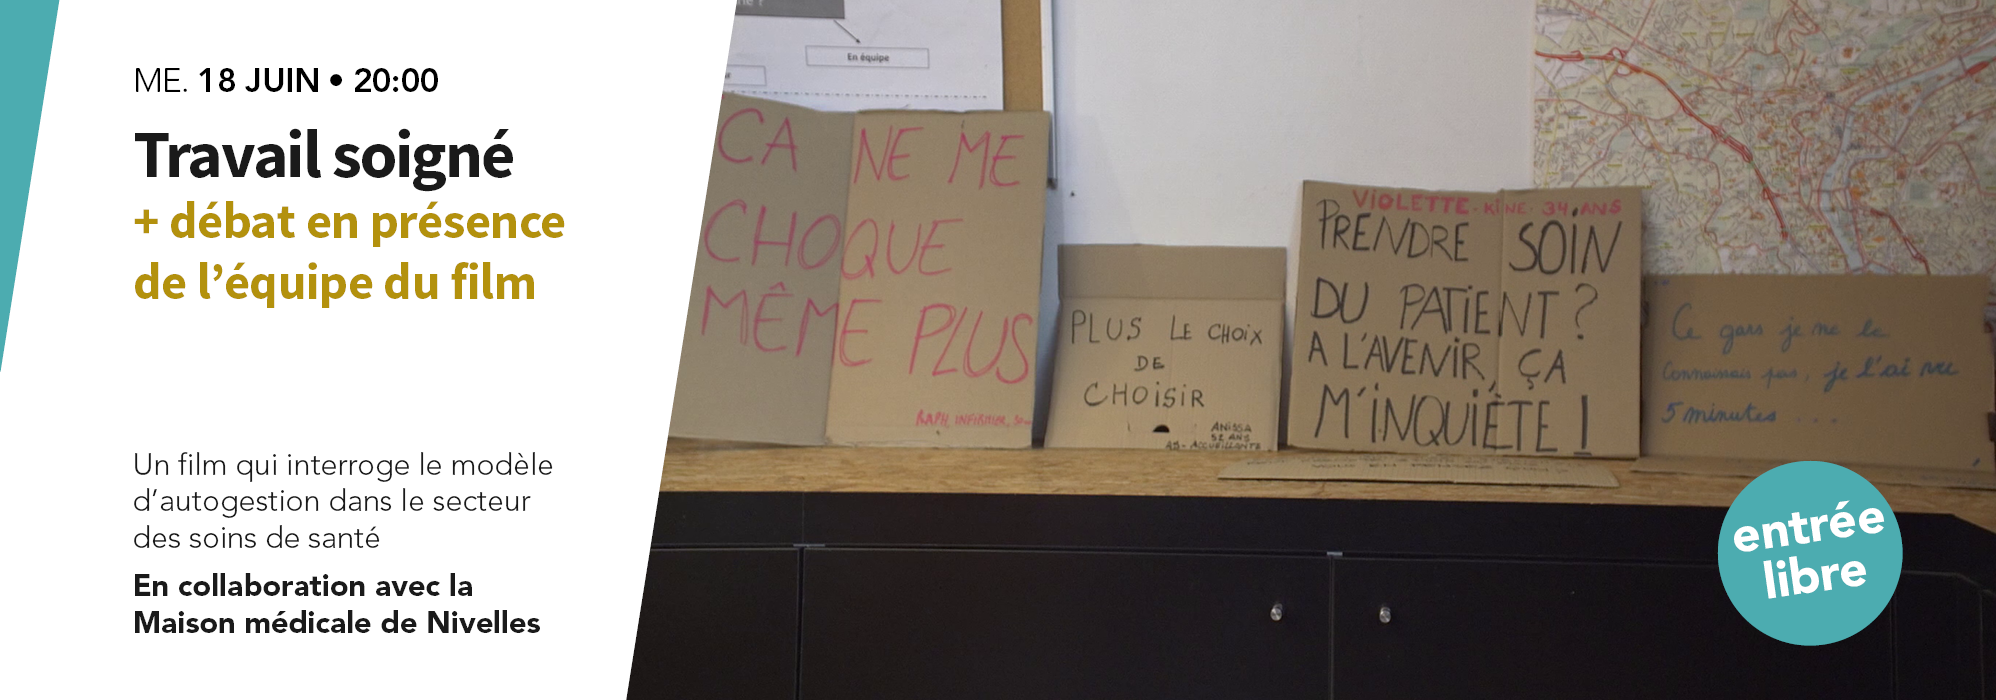 ME. 18 JUIN • 20:00
Travail soigné
+ débat en présence
de l’équipe du film
Un film qui interroge le modèle
d’autogestion dans le secteur
des soins de santé
En collaboration avec la
Maison médicale de Nivelles
En équipe
CA NE ME
CHOQUE
MÊME PLUS
RAPH, INFIRMIER,
PLUS LE CHOIX
DE
CHOISIR
ANISSA
52 ANS
AS - ACCUEILLANTE
VIOLETTE - KINÉ - 34 ANS
PRENDRE SOIN
DU PATIENT ?
A L'AVENIR, ÇA
M'INQUIÈTE !
Ce gars je ne le
connaissais pas, je l'ai vu
5 minutes ...
entrée
libre